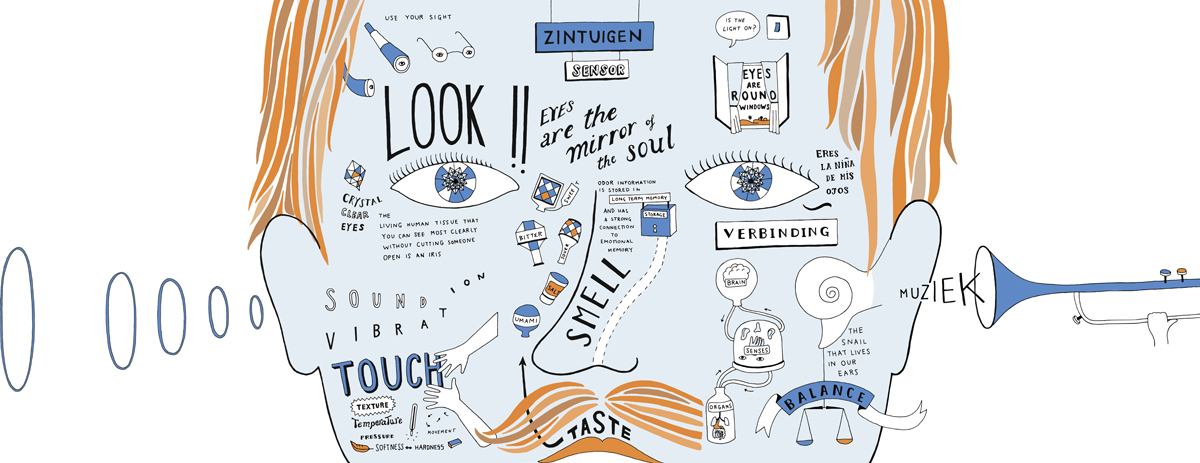 USE YOUR SIGHT
ZINTUIGEN
SENSOR
IS THE
LIGHT ON?
LOOK !!
EYES
are the
mirror of
the soul
EYES
ARE
ROUND
WINDOWS
CRYSTAL
CLEAR
EYES
THE
LIVING HUMAN TISSUE THAT
YOU CAN SEE MOST CLEARLY
WITHOUT CUTTING SOMEONE
OPEN IS AN IRIS
SWEET
BITTER
SOUR
SALT
UMAMI
ODOR INFORMATION
IS STORED IN
LONG TERM MEMORY
AND HAS
A STRONG
CONNECTION
TO
EMOTIONAL
MEMORY
STORAGE
SMELL
ERES
LA NIÑA
DE MIS
OJOS
VERBINDING
SOUND
VIBRATION
TOUCH
TEXTURE
Temperature
PRESSURE
MOVEMENT
SOFTNESS ↔ HARDNESS
TASTE
BRAIN
SENSES
ORGANS
THE
SNAIL
THAT LIVES
IN OUR
EARS
BALANCE
MUZIEK